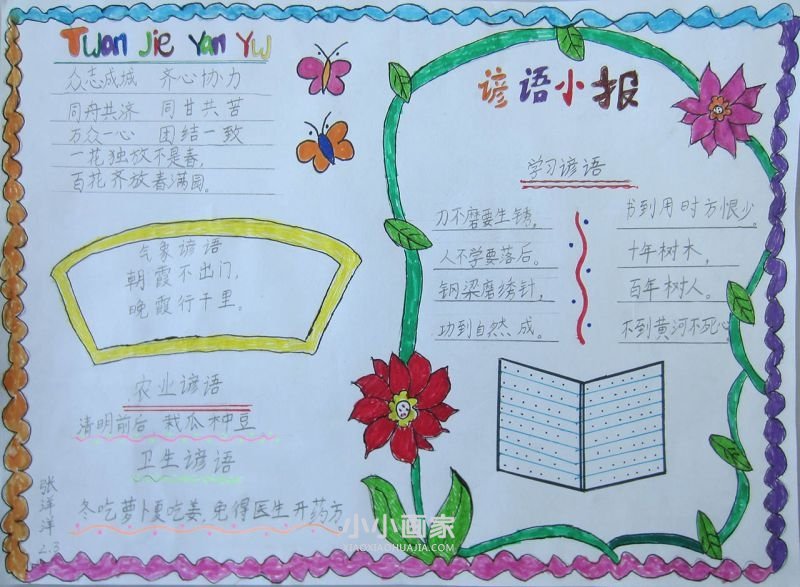 Twan Jie Yan Yu
众志成城 齐心协力
同舟共济 同甘共苦
万众一心 团结一致
一花独放不是春,
百花齐放春满园。
气象谚语
朝霞不出门,
晚霞行千里。
农业谚语
清明前后,栽瓜种豆
卫生谚语
冬吃萝卜夏吃姜,免得医生开药方。
张洋洋
2.3
谚语小报
学习谚语
刀不磨要生锈,
人不学要落后。
钢梁磨绣针,
功到自然成。
书到用时方恨少。
十年树木,
百年树人。
不到黄河不死心
小小画家
XIAOXIAOHUAJIA.COM